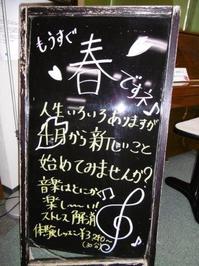 もうすぐ
春
ですネ♪
人生いろいろありますが
今日から新しいこと
始めてみませんか?
音楽はとにかく♪
楽しーい!!
ストレス解消
体験レッスン
(30分)